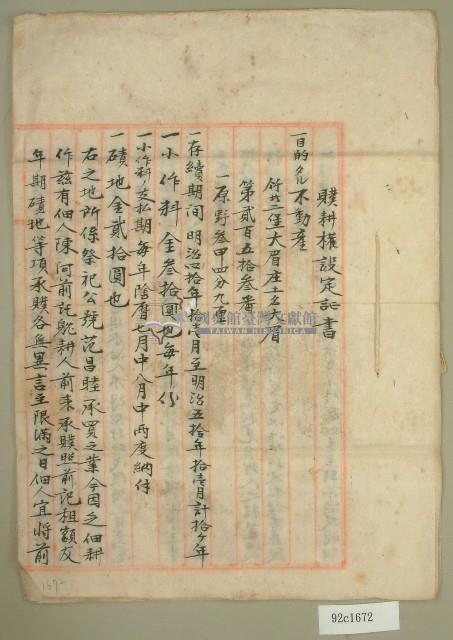 贌耕權設定証書
一目的タル不動產
竹北二堡大眉庄土名大眉
第貳百五拾叁番
一原野叁甲四分九厘
一存續期间明治四拾年拾壱月至明治五拾年拾壱月計拾ケ年
一小作料金叁拾圓也每年分
一小作料ノ支払期每年陰曆七月中八月中両度納付
一磧地金貳拾圓也
右之地所係祭祀公號范昌睦承買之業今因乏佃耕
作兹有佃人陳阿前託耕人前來承贌照前記租額及
年期磧地等項承贌各無異言至限滿之日佃人宜將前
國史館臺灣文獻館
TAIWAN HISTORICA
1672
92c1672